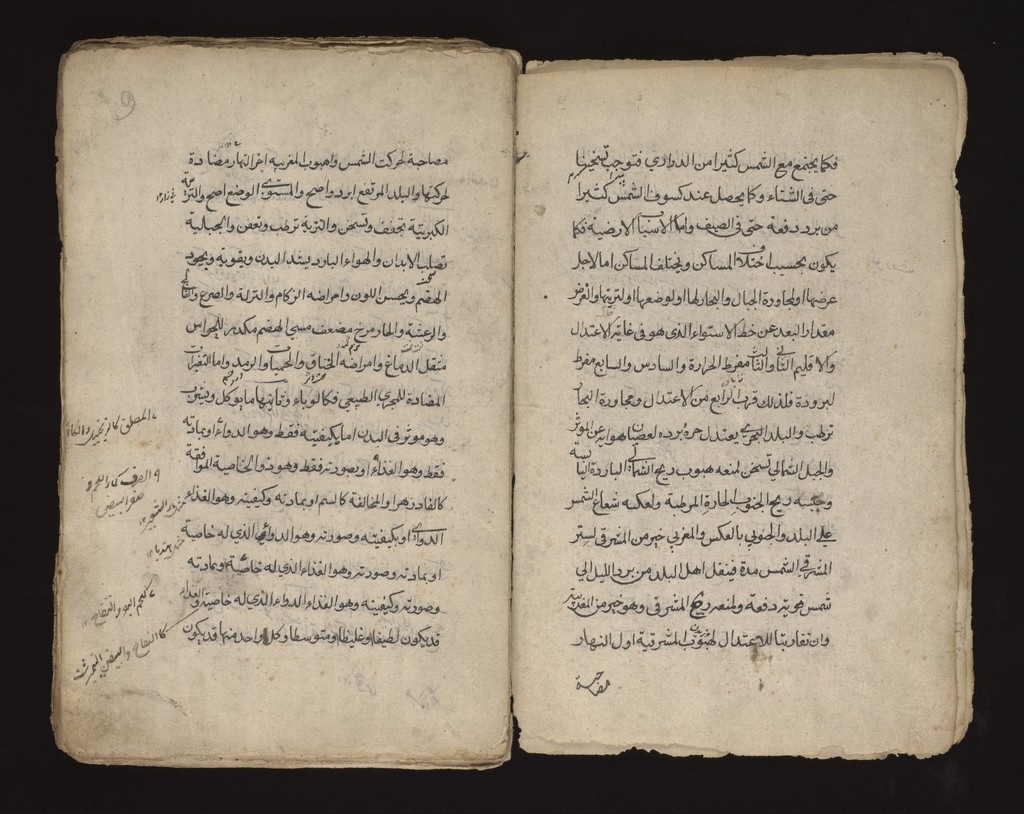 فكما يجتمع مع الشمس كثيرا من الدراري فتوجب تسخينا
حتى فى الشتاء وكما يحصل عند كسوف الشمس كثيرا
من برد دفعة حتى فى الصيف واما الاسباب الارضية فكما
يكون بحسب اختلاف المساكن ويختلف المساكن اما لاجل
عرضها او لمجاورة الجبال والبحار لها او لوضعها او لتربتها والعرض
مقدار البعد عن خط الاستواء الذى هو فى غاية الاعتدال
والاقليم الثانى والثالث مفرط الحرارة والسادس والسابع مفرط
البرودة فلذلك قرب الرابع من الاعتدال ومجاورة البحار
ترطب والبلد البحرى يعتدل حره وبرده لعصيان هوائه عن المؤثر
والجبل الشمالى تسخن لمنعه هبوب ريح الشمالى الباردة اليابسة
وحبسه ريح الجنوب الحارة المرطبة ولعكسه شعاع الشمس
على البلد والجنوبي بالعكس والمغربي خير من المشرقى لستر
المشرقي الشمس مدة فينقل اهل البلد من برد الليل الى
شمس قوية دفعة ولمنعه ريح المشرقى وهو خير من المغربية
وان تقاربتا للاعتدال لهبوب المشرقية اول النهار
مصاحبة
مصاحبة لحركت الشمس واهبوب المغربيه اخر النهار مضادة
لحركتها والبلد المرتفع ابرد واصح والمستوى الوضع اصح والتربة
الكبريتية تجفف وتسخن والنزية ترطب وتعفن والجبلية
تصلب الابدان والهواء البارد يشد البدن ويقويه ويجود
الهضم ويحسن اللون وامراضه الزكام والنزلة والصرع والفالج
والرعشة والحار مرخ مضعف مسئ الهضم مكدر للحواس
مثقل الدماغ وامراضه الخناق والحميات والرمد واما التغيرات
المضادة للمجرى الطبيعى فكالوباء وثانيها ما يوكل ويشرب
وهو موثر فى البدن اما بكيفيته فقط وهو الدواء او بمادته
فقط وهو الغذاء او بصورته فقط وهو ذو الخاصية الموافقة
كالفادزهر او المخالفة كالسم او بمادته وكيفيته وهو الغذاء
الدوائى او بكيفيته وصورته وهو الدوائى الذى له خاصية
او بمادته وصورته وهو الغذاء الذى له خاصية او بمادته
وصورته وكيفيته وهو الغذاء الدواء الذى له خاصية والغذاء
قد يكون لطيفا وغليظا ومتوسطا وكل واحد منها قد يكون